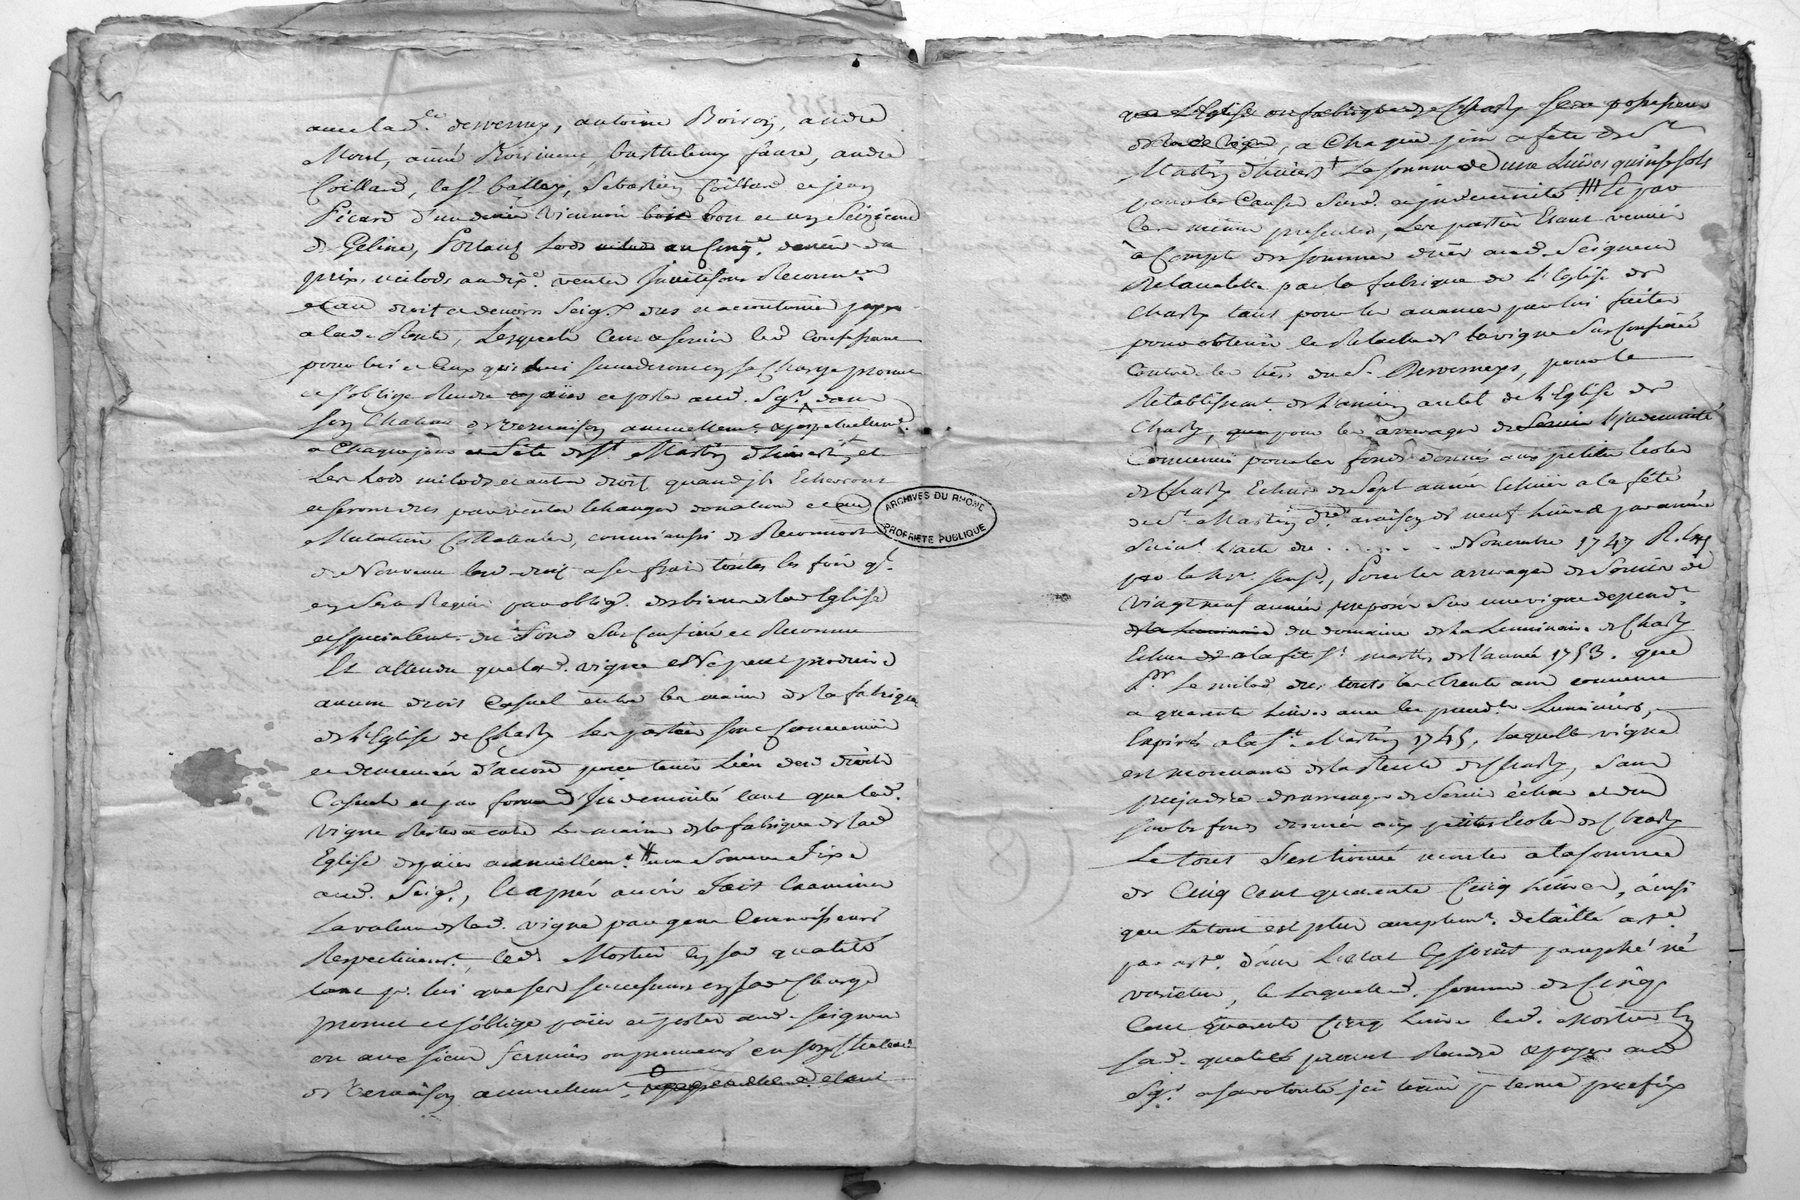 avec lad. deverney, antoine Boiron, andré
Mont, aimé Boissieux, barthelemy faure, andré
Coillard, les. ballex, Sebastien Coillard et jean
Picard d'un denier viennois bon et un Seizieme
de Geline, Portant Lods au Cinq.e denier du
prix, milods au dix.e ventes
droit et devoirs Seig.x dus et accoutumés payer
a lad. Rente, Lesquels Cens et servis led. confessant
pour lui et Ceux qui lui succederont en sa Charge promet
et s'oblige Rendre et porter aud. Sgr. dans
son Chateau de Vernaison annuellem.t & perpetuellem.t
a Chaque jour et fête de St Martin d'hivert, et
Les Lods milods et autres droits quand ils Echerront
et seront dus par ventes Echanges donations et
Mutations Collaterales, comm'aussi de Reconnoitre
de Nouveau a ses frais toutes les fois q.
en sera Requis par oblig. des biens de lad Eglise
et specialem.t du fond Sus Confiné et Reconnu
Et attendu que lad. vigne ne peut produire
aucun droit Casuel entre les mains de la fabrique
de l'Eglise de Charly les parties sont Convenues
et demeurées d'accord pour tenir Lieu des droits
Casuels et par forme d'Indemnité tant que lad.
vigne Restera entre Les mains de la fabrique de lad
Eglise de païer annuellem.t une Somme fixe
aud. Seig.r, Et après avoir fait Examiner
La valeur de lad. vigne par gens Connoisseurs
Respectivement, led. Mortier en sad qualité
tant p. lui que ses successeurs en sad Charge
promet et s'oblige païer et porter aud. Seigneur
ou aux sieurs fermiers ou preneurs en son Chateau
de Vernaison annuellement
que l'Eglise ou fabrique de Charly sera possesseur
de lad. vigne, a Chaque jour et fête de St
Martin d'hivert La somme de une Livres quinze sols
pour les Causes Servis et indemnité. Et par
Ces mêmes presentes, Les parties Etant venues
à Compte des sommes duës aud. Seigneur
De Lavalette par la fabrique de L'Eglise de
Charly tant pour les avances par lui faites
pour obtenir le Relache de la vigne Sus Confinée
Contre les her. du S. Deverneys, pour le
Retablissem.t de l'ancien autel de l'Eglise de
Charly, que pour les arrerages de Servis & Indemnité
Convenue pour les fonds donnés aux petites Ecoles
de Charly Echus de Sept années Echues a la fête
de St. Martin d.re a raison de neuf Livres par année
Suiv.t L'acte du . . . . . . Novembre 1747 R. Ley
par le Nre. souss., Pour les arrerages de Servis de
vingt neuf années imposés Sur une vigne depend.te
du domaine de la Luminaire de Charly
Echus a la fête St. martin de l'année 1753. que
pr. Le milod dus touts les trente ans convenu
a quarante Livres avec les preced.ts Luminiers,
Expirés a la St. Martin 1745, laquelle vigne
est mouvante de la Rente de Charly, Sans
prejudice des arrerages de Servis échus et dus
sur les fonds donnés aux petites Ecoles de Charly
Le tout S'est trouvé monter a la somme
de Cinq Cent quarante Cinq Livres, ainsi
que Le tout est plus amplem.t detaillé art.e
par art.e dans L'etat Cy joint paraphé né
varietur, La quelle d. somme de Cinq
Cent Quarante Cinq Livres led. Mortier en
sad. qualité promet Rendre & payer aud
Sgr. a sa volonté ici tenue p. terme prefix
ARCHIVES DU RHONE
PROPRIETE PUBLIQUE